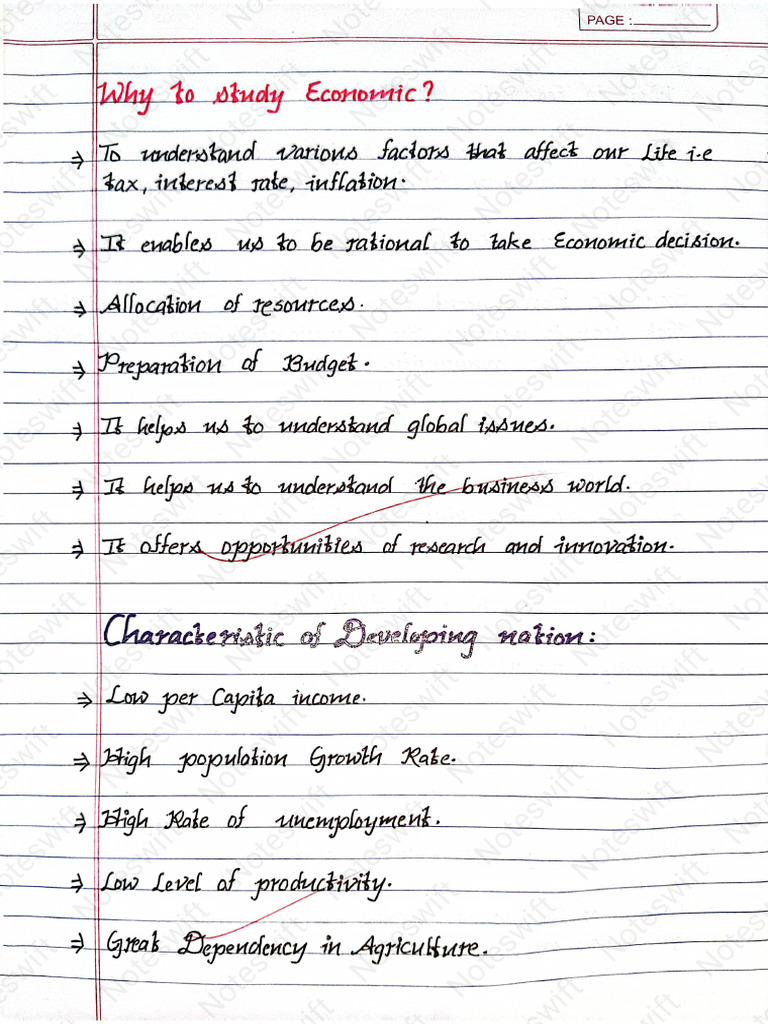 PAGE :
Why to study Economic?
⇒ To understand various factors that affect our Life i.e
tax, interest rate, inflation.
⇒ It enables us to be rational to take Economic decision.
⇒ Allocation of resources.
⇒ Preparation of Budget.
⇒ It helps us to understand global issues.
⇒ It helps us to understand the business world.
⇒ It offers opportunities of research and innovation.
Characteristic of Developing nation:
⇒ Low per Capita income.
⇒ High population Growth Rate.
⇒ High Rate of unemployment.
⇒ Low Level of productivity.
⇒ Great Dependency in Agriculture.
Noteswift